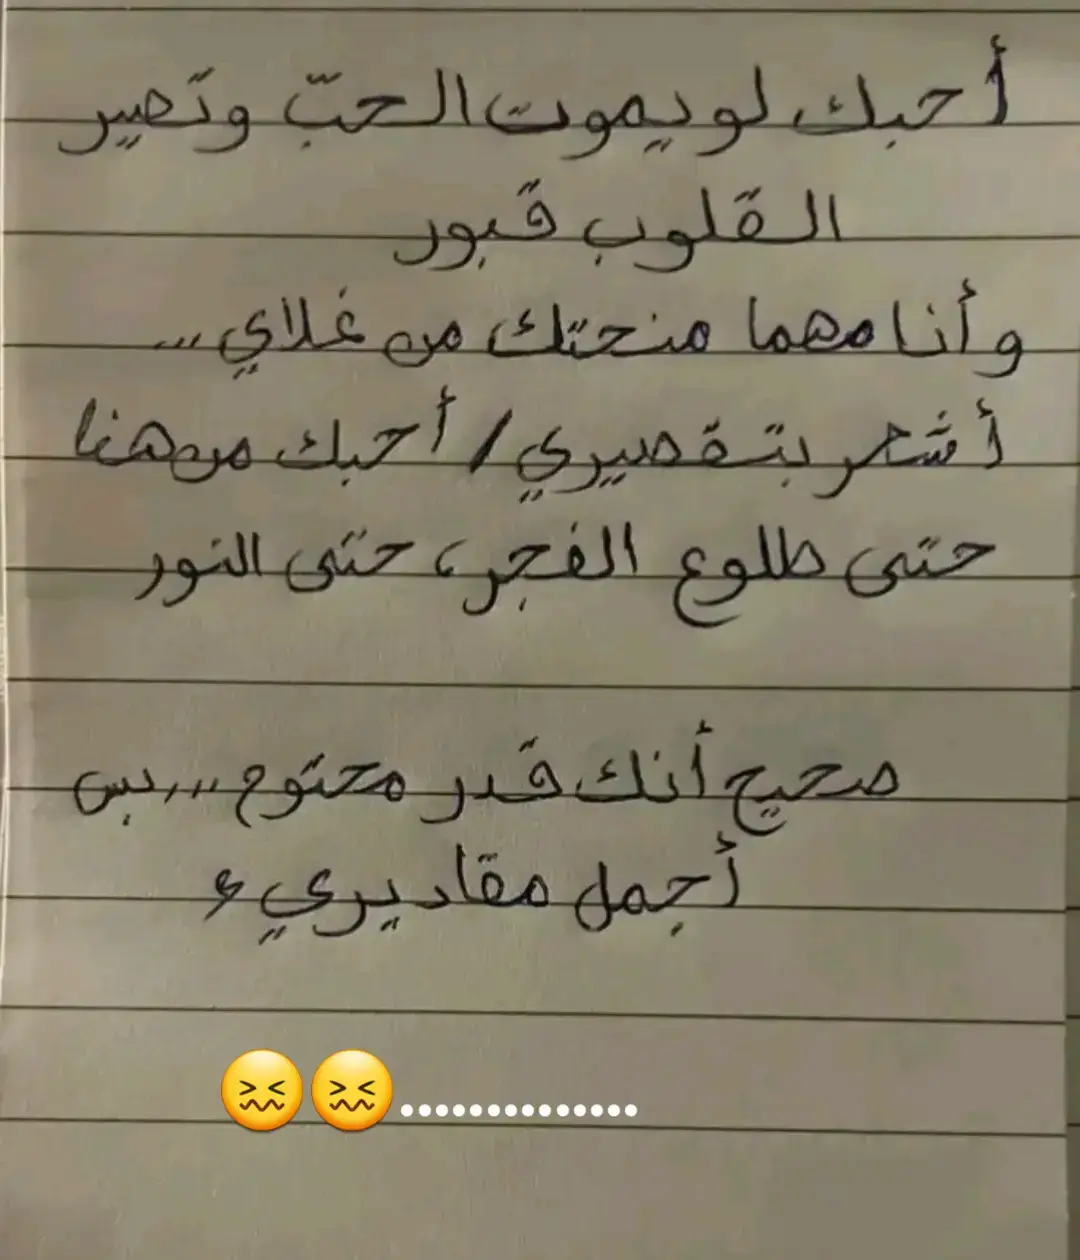 أحبك لو يموت الحبّ وتصير
القلوب قبور
وأنا مهما منحتك من غلاي...
أشعر بتقصيري / أحبك من هنا
حتى طلوع الفجر، حتى النور
صحيح أنك قدر محتوم... بس
أجمل مقاديري
😖😖..............